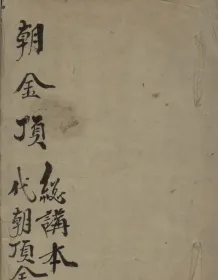 朝金頂
總講本
代朝頂金